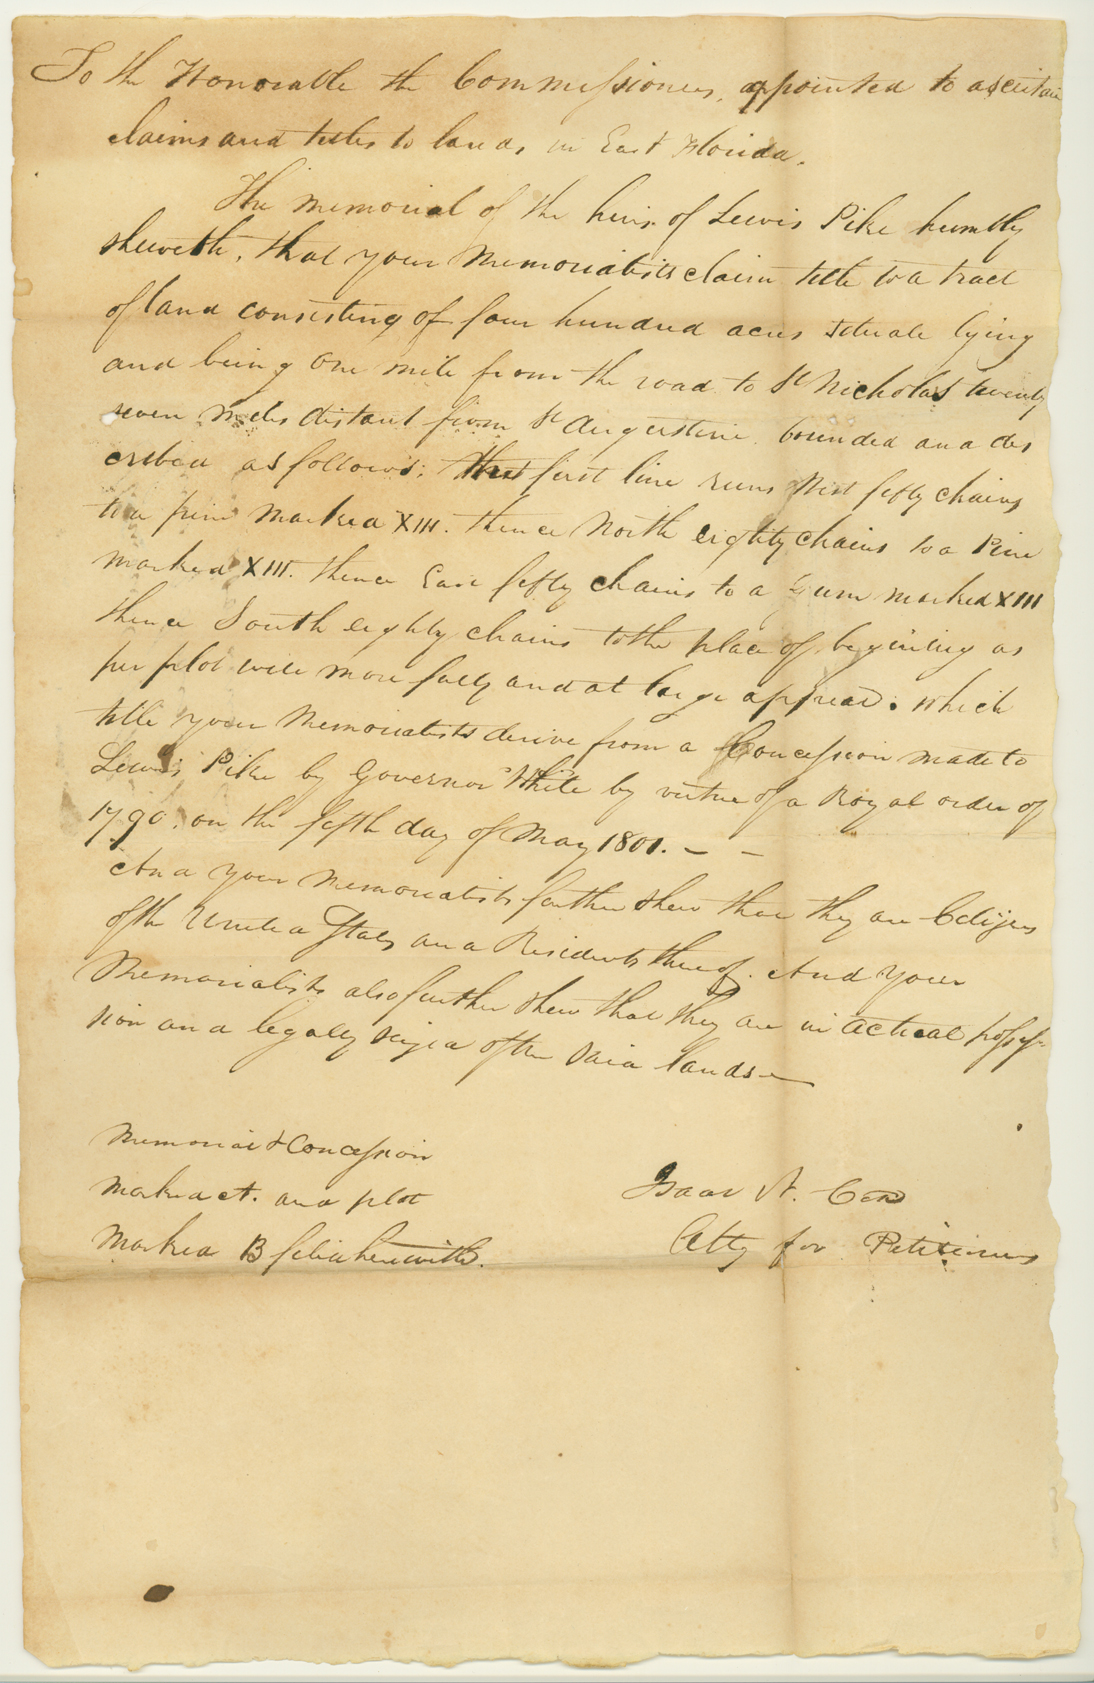 To the Honorable the Commissioners, appointed to ascertain
claims and titles to lands in East Florida.
The memorial of the heirs of Lewis Pike humbly
sheweth, that your Memorialists claim title to a tract
of land consisting of four hundred acres situate lying
and being one mile from the road to St Nicholas twenty
seven miles distant from St Augustine bounded and des
cribed as follows: first line runs West fifty chains
to a pine marked XIII. thence North eighty chains to a Pine
marked XIII. thence East fifty chains to a Gum marked XIII
thence South eighty chains to the place of begining as
per plot will more fully and at large appear. which
title your Memorialists derive from a Concession made to
Lewis Pike by Governor White by virtue of a Royal order of
1790. on the fifth day of May 1801. — —
And your memorialists further shew that they are Citizens
of the United States and Residents thereof. And your
Memorialists also further shew that they are in actual posses
sion and legally seized of the said lands —
Memorial & Concession
Marked A. and plot
Marked B filed herewith.
Isaac N. Cox
Atty for Petitioners